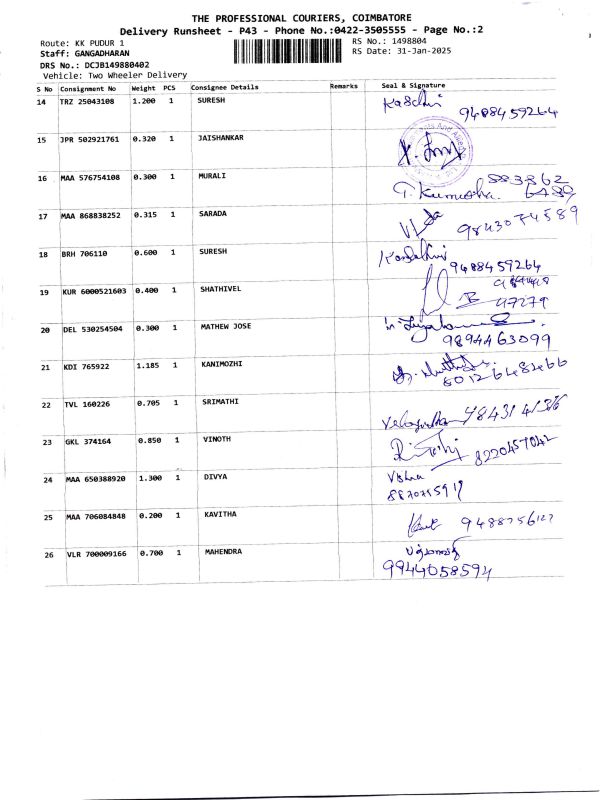 THE PROFESSIONAL COURIERS, COIMBATORE
Delivery Runsheet - P43 - Phone No.:0422-3505555 - Page No.:2
Route: KK PUDUR 1 RS No.: 1498804
Staff: GANGADHARAN RS Date: 31-Jan-2025
DRS No.: DCJB149880402
Vehicle: Two Wheeler Delivery
S No Consignment No Weight PCS Consignee Details Remarks Seal & Signature
14 TRZ 25043108 1.200 1 SURESH
9488459264
15 JPR 502921761 0.320 1 JAISHANKAR
16 MAA 576754108 0.300 1 MURALI
17 MAA 868838252 0.315 1 SARADA
9843074589
18 BRH 706110 0.600 1 SURESH
9488459264
19 KUR 6000521603 0.400 1 SHATHIVEL
47279
20 DEL 530254504 0.300 1 MATHEW JOSE
9894463099
21 KDI 765922 1.185 1 KANIMOZHI
22 TVL 160226 0.705 1 SRIMATHI
23 GKL 374164 0.850 1 VINOTH
8220457042
24 MAA 650388920 1.300 1 DIVYA
25 MAA 706084848 0.200 1 KAVITHA
26 VLR 700009166 0.700 1 MAHENDRA
9944058594